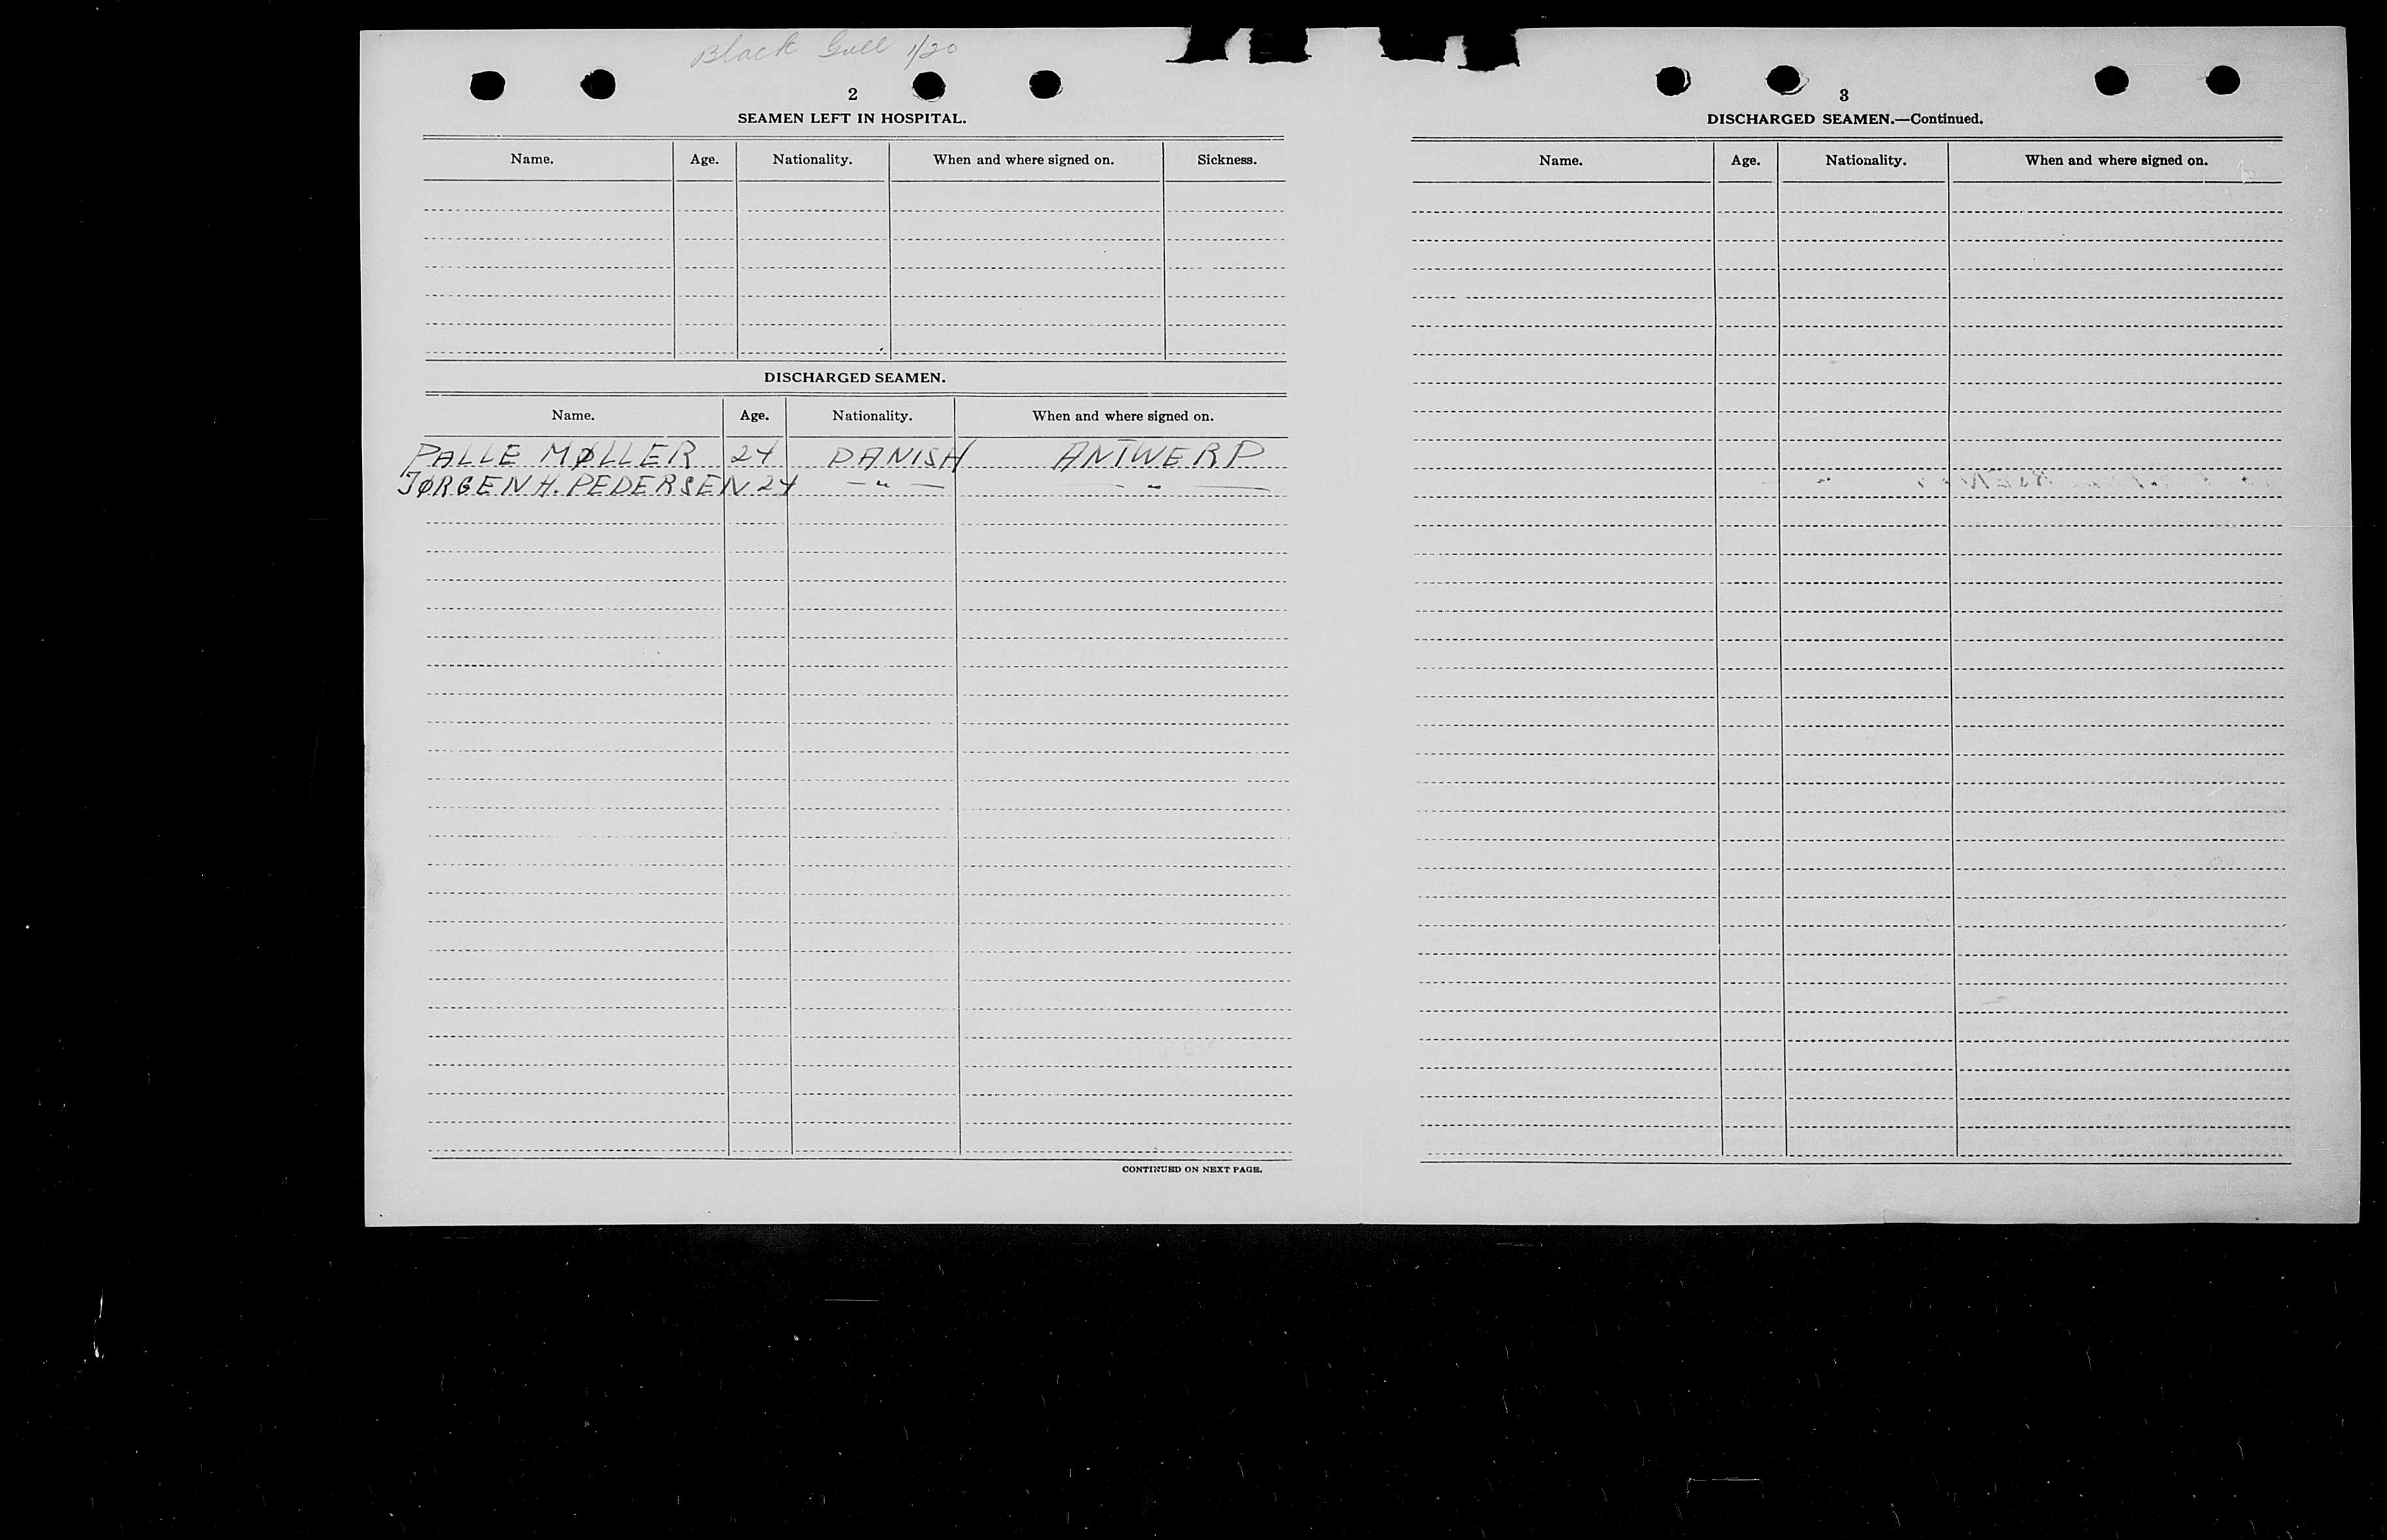 Black Gull 1/20
2
SEAMEN LEFT IN HOSPITAL.
Name. Age. Nationality. When and where signed on. Sickness.
DISCHARGED SEAMEN.
Name. Age. Nationality. When and where signed on.
PALLE MØLLER 24 DANISH ANTWERP
JØRGEN H. PEDERSEN 24 — " — — " —
CONTINUED ON NEXT PAGE.
3
DISCHARGED SEAMEN.—Continued.
Name. Age. Nationality. When and where signed on.